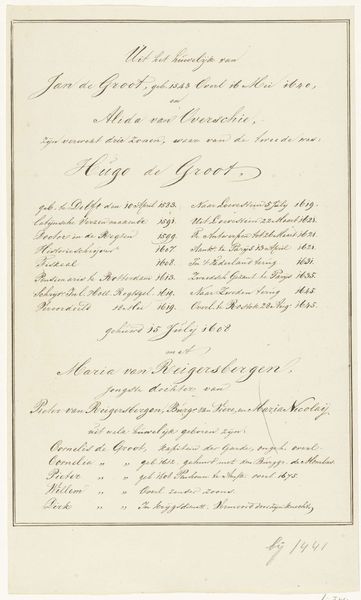 Uit het huwelijk van
Jan de Groot, geb. 1543 Overl. 16 Mei 1640,
en
Alida van Overschie,
zijn verwekt drie zonen, waar van de tweede was:
Hugo de Groot,
geb. te Delft den 10 April 1583. Naar Loevestein 5 July 1619.
Latijnsche Verzen maakende 1591. Uit Loevestein 22 Maart 1621.
Doctor in de Regten 1599. Antwerpen 1621.
Historieschrijver 1607. te Parijs 13 April 1621.
Fiskaal 1608. In 't Vaderland terug 1631.
Pensionaris te Rotterdam 1613. Zweedsch Gezant te Parijs 1635.
Schrijver Inl. Holl. Regtsgel. 1619. Naar Zweden terug 1645.
Veroordeeld 18 Mei 1619. Overl. te Rostok 28 Aug. 1645.
gehuwd 15 July 1608
met
Maria van Reigersbergen,
jongste dochter van
Pieter van Reigersbergen, Burg. van Veere, en Maria Nicolaij
uit welk huwelijk geboren zijn:
Cornelis de Groot, kapitein der Garde, ongeh. overl.
Cornelia " " geb. 1611. gehuwd met den Burgg. de Monbas
Pieter " " geb. overl. 1678
Willem " " Overl. zonder zoons.
Dirk " " In krijgsdienst. Vermoord door zijn knecht.
bij 1441